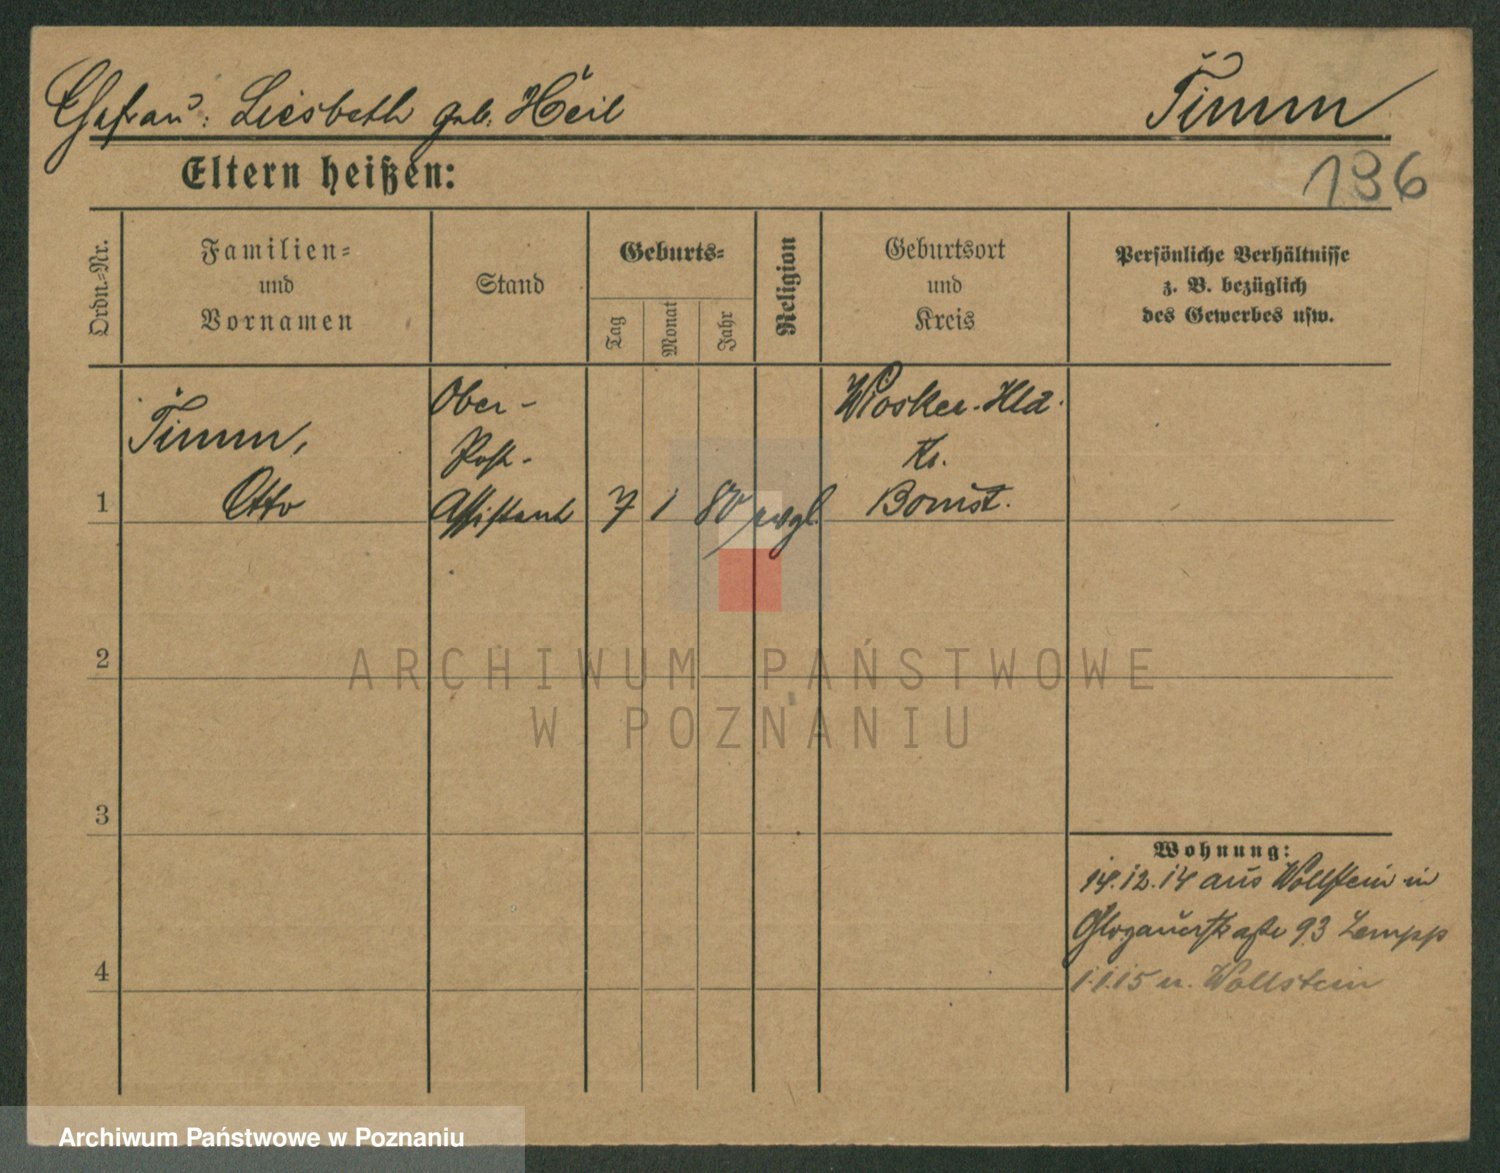 Ehefrau: Liesbeth geb. Heil
Timm
Eltern heißen:
136
Ordn.-Nr.
Familien-
und
Vornamen
Stand
Geburts-
Tag
Monat
Jahr
Religion
Geburtsort
und
Kreis
Persönliche Verhältnisse
z. B. bezüglich
des Gewerbes usw.
1
Timm,
Otto
Ober-
Post-
Assistent
7
1
80
evgl.
Wiosker-Hld.
Kr.
Bomst.
2
3
4
Wohnung:
14.12.14 aus Wollstein in
Glogauerstraße 93 Lempp
1.1.15 n. Wollstein
ARCHIWUM PAŃSTWOWE
W POZNANIU
Archiwum Państwowe w Poznaniu